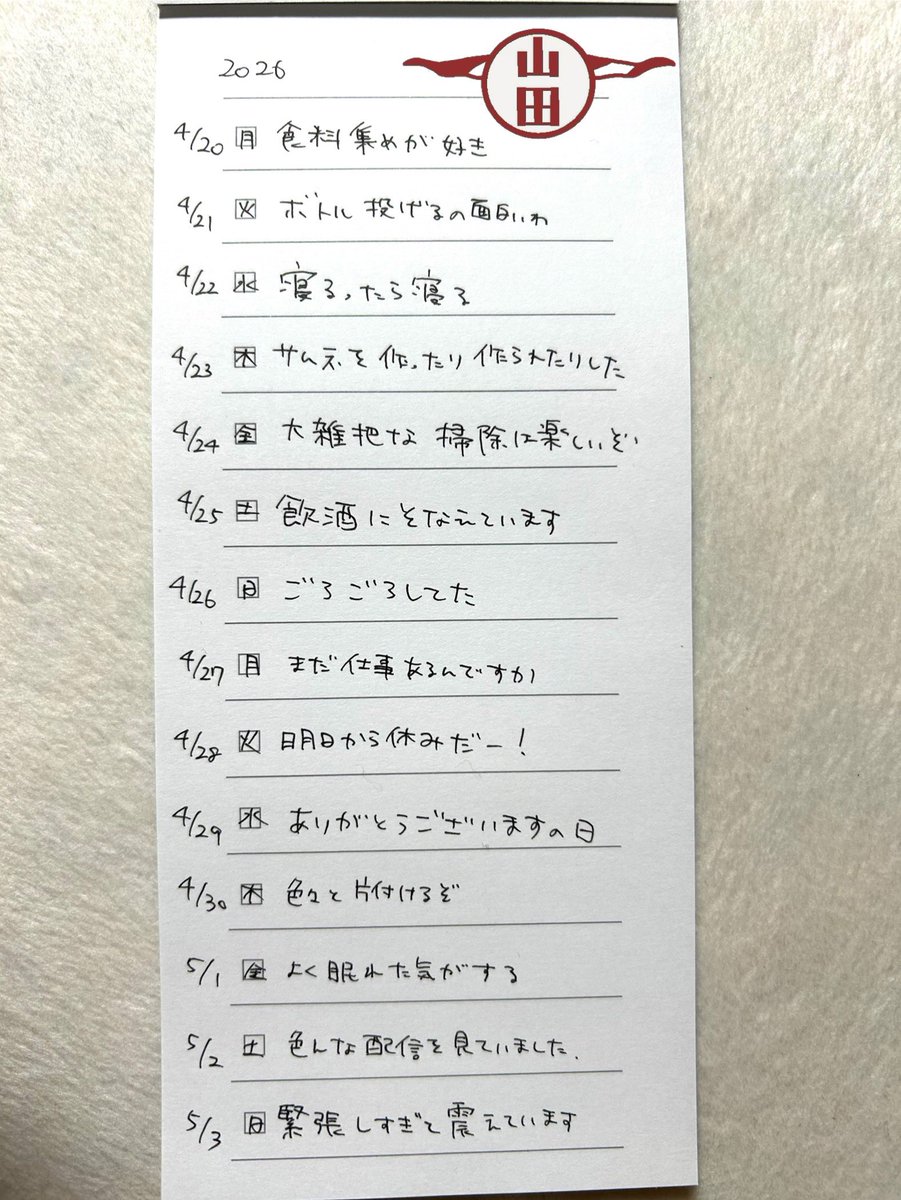 2026
山田
4/20 月 食料集めが好き
4/21 火 ボトル投げるの面白いわ
4/22 水 寝る、たら寝る
4/23 木 サムネを作ったり作られたりした
4/24 金 大雑把な掃除は楽しいぞい
4/25 土 飲酒にそなえています
4/26 日 ごろごろしてた
4/27 月 まだ仕事あるんですか
4/28 火 明日から休みだー！
4/29 水 ありがとうございますの日
4/30 木 色々と片付けるぞ
5/1 金 よく眠れた気がする
5/2 土 色んな配信を見ていました.
5/3 日 緊張しすぎて震えています